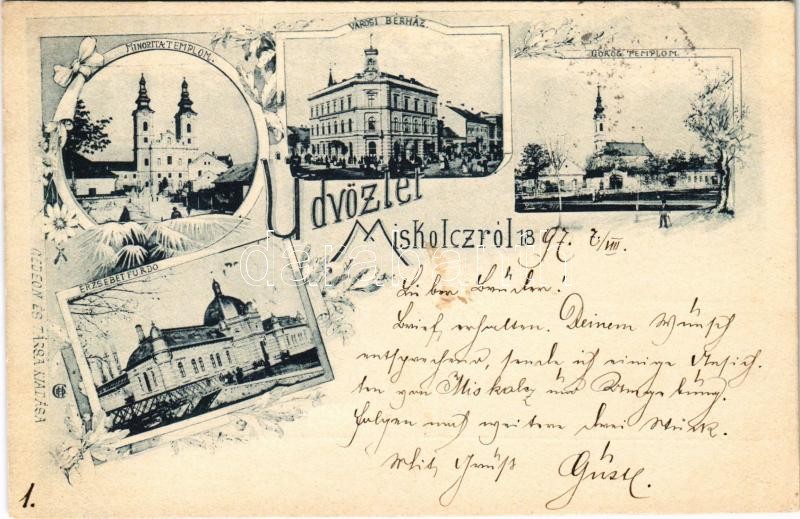 MINORITA TEMPLOM.
VÁROSI BÉRHÁZ.
GÖRÖG TEMPLOM.
Üdvözlet
Miskolczról 18 97. 7/VIII.
ERZSÉBETFÜRDŐ
GEDEON ÉS TÁRSA KIADÁSA
Lieber Bruder!
Brief erhalten. Deinem Wunsch
entsprechend, sende ich einige Ansich-
ten von Miskolcz und Umgebung.
Folgen noch weitere drei Stück.
Mit Gruß Gustl.
1.
darabanth